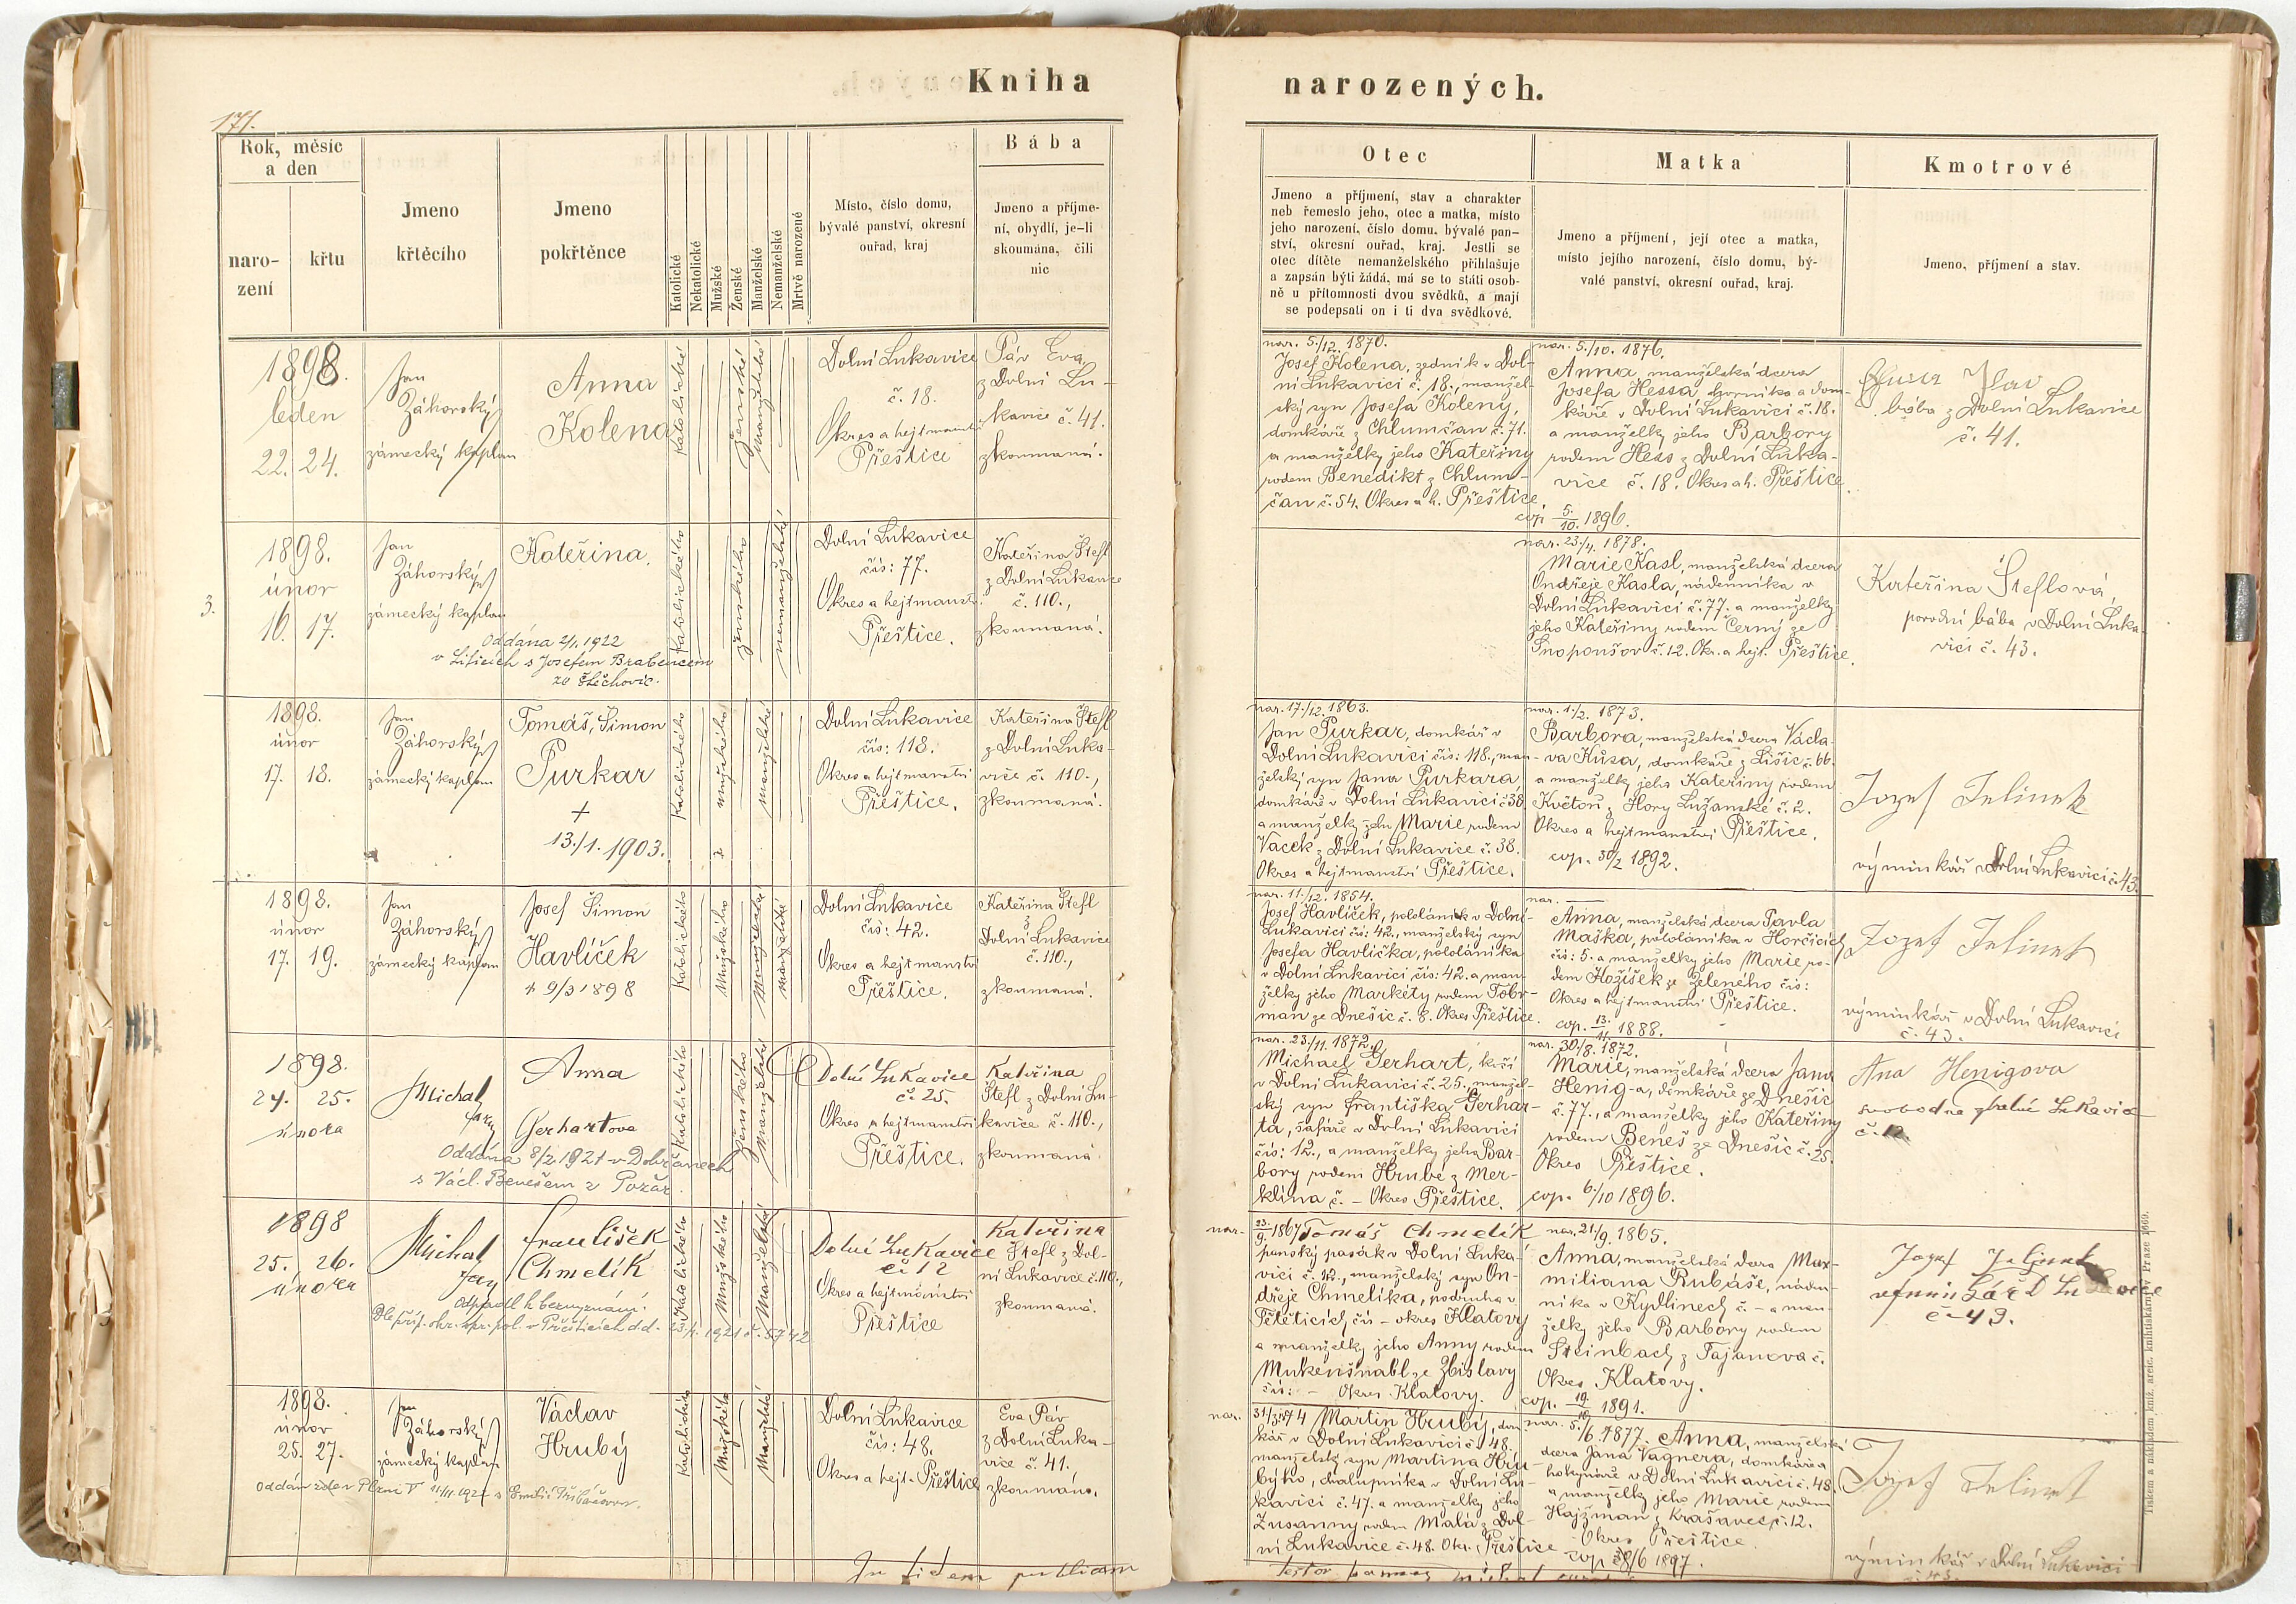 Kniha
narozených.
171.
Rok, měsíc
a den
naro-
zení
křtu
Jmeno
křtěcího
Jmeno
pokřtěnce
Katolické
Nekatolické
Mužské
Ženské
Manželské
Nemanželské
Mrtvě narozené
Místo, číslo domu,
bývalé panství, okresní
ouřad, kraj
Bába
Jmeno a příjme-
ní, obydlí, je-li
skoumána, čili
nic
Otec
Jmeno a příjmení, stav a charakter
neb řemeslo jeho, otec a matka, místo
jeho narození, číslo domu, bývalé pan-
ství, okresní ouřad, kraj. Jestli se
otec dítěte nemanželského přihlašuje
a zapsán býti žádá, má se to státi osob-
ně u přítomnosti dvou svědků, a mají
se podepsati on i ti dva svědkové.
Matka
Jmeno a příjmení, její otec a matka,
místo jejího narození, číslo domu, bý-
valé panství, okresní ouřad, kraj.
Kmotrové
Jmeno, příjmení a stav.
1898.
leden
22. 24.
Jan
Záhorský
zámecký kaplan
Anna
Kolena
Katolické
Ženské
Manželské
Dolní Lukavice
č. 18.
Okres a hejtmanství
Přeštice
Páv Eva
z Dolní Lu-
kavice č. 41.
zkoumaná.
nar. 5./12. 1870.
Josef Kolena, zedník v Dol-
ní Lukavici č. 18., manžel-
ský syn Josefa Koleny,
domkáře z Chlumčan č. 71.
a manželky jeho Kateřiny
rodem Benedikt z Chlum-
čan č. 54. Okres a h. Přeštice
nar. 5./10. 1876.
Anna, manželská dcera
Josefa Hessa, dom-
káře v Dolní Lukavici č. 18.
a manželky jeho Barbory
rodem Hess z Dolní Luka-
vice č. 18. Okres a h. Přeštice.
cop. 5./10. 1896.
Páv
bába z Dolní Lukavice
č. 41.
3.
1898.
únor
16. 17.
Jan
Záhorský
zámecký kaplan
Kateřina.
Oddána 2/1. 1922
v Liticích s Josefem Brabencem
ze Štěchovic.
Katolického
ženského
nemanželské
Dolní Lukavice
čís: 77.
Okres a hejtmanst.
Přeštice.
Kateřina Štefl
z Dolní Lukavice
č. 110.,
zkoumaná.
nar. 23./4. 1878.
Marie Kasl, manželská dcera
Ondřeje Kasla, nádenníka v
Dolní Lukavici č. 77. a manželky
jeho Kateřiny rodem Černý ze
Snopoušov č. 12. Okr. a hejt. Přeštice.
Kateřina Šteflová,
porodní bába v Dolní Luka-
vici č. 43.
1898.
únor
17. 18.
Jan
Záhorský
zámecký kaplan
Tomáš, Šimon
Purkar
+
13./1. 1903.
Katolického
mužského
manželské
Dolní Lukavice
čís: 118.
Okres a hejtmanství
Přeštice.
Kateřina Štefl
z Dolní Luka-
vice č. 110.,
zkoumaná.
nar. 17./12. 1863.
Jan Purkar, domkář v
Dolní Lukavici čís: 118., man-
želský syn Jana Purkara
domkáře v Dolní Lukavici č. 38
a manželky jeho Marie rodem
Vacek z Dolní Lukavice č. 38.
Okres a hejtmanství Přeštice.
nar. 1./2. 1873.
Barbora, manželská dcera Václa-
va Kůsa, domkáře z Lišic č. 66.
a manželky jeho Kateřiny rodem
Květoň z Hory Lužanské č. 2.
Okres a hejtmanství Přeštice.
cop. 30/2 1892.
Jozef Jelinek
výminkář v Dolní Lukavici č. 43.
1898.
únor
17. 19.
Jan
Záhorský
zámecký kaplan
Josef Šimon
Havlíček
† 9/3 1898
Katolického
Mužského
Manželské
manželské
Dolní Lukavice
čís: 42.
Okres a hejtmanství
Přeštice.
Kateřina Štefl
z
Dolní Lukavice
č. 110.,
zkoumaná.
nar. 11./12. 1854.
Josef Havlíček, pololáník v Dolní
Lukavici čís: 42., manželský syn
Josefa Havlíčka, pololáníka
v Dolní Lukavici čís: 42. a man-
želky jeho Markéty rodem Tobr-
man ze Dnešic č. 8. Okres Přeštice.
nar. —
Anna, manželská dcera Pavla
Maška, pololáníka v Horčicích
čís: 5. a manželky jeho Marie ro-
dem Kožíšek ze Zeleného čís:
Okres a hejtmanství Přeštice.
cop. 13./11. 1888.
Jozef Jelinek
výminkář v Dolní Lukavici
č. 43.
1898.
24. 25.
února
Michal
Jan
Anna
Gerhartova
Oddána 8/2. 1921 v Dobřanech
s Václ. Benešem z Požár.
Katolického
Ženského
Manželské
Dolní Lukavice
č. 25.
Okres a hejtmanství
Přeštice.
Kateřina
Štefl z Dolní Lu-
kavice č. 110.,
zkoumaná
nar. 23./11. 1872.
Michael Gerhart, kočí
v Dolní Lukavici č. 25., manžel-
ský syn Františka Gerhar-
ta, šafáře v Dolní Lukavici
čís: 12., a manželky jeho Bar-
bory rodem Hrubé z Mer-
klína č. – Okres Přeštice.
nar. 30./8. 1872.
Marie, manželská dcera Jana
Henig-a, domkáře ze Dnešic
č. 77., a manželky jeho Kateřiny
rodem Beneš ze Dnešic č. 25.
Okres Přeštice.
cop. 6./10 1896.
Ana Henigova
svobodna z Dolní Lukavice
č. 12.
1898
25. 26.
února
Michal
Jan
František
Chmelík
Odpadl k bezvyznání.
Dle příp. okr. spr. pol. v Přešticích d.d. 23/4. 1921 č. 5742
Katolického
Mužského
Manželské
Dolní Lukavice
č. 12
Okres a hejtmanství
Přeštice
Kateřina
Štefl z Dol-
ní Lukavice č. 110.,
zkoumaná.
nar. 23./9. 1867 Tomáš Chmelík
panský pasák v Dolní Luka-
vici č. 12., manželský syn On-
dřeje Chmelíka, podruha v
Pětěticích čís – okres Klatovy
a manželky jeho Anny rodem
Mukenšnabl ze Zbislavy
čís: – Okres Klatovy.
nar. 21/9. 1865.
Anna, manželská dcera Max-
miliana Rubáše, náden-
níka v Kydlinech č. – a man-
želky jeho Barbory rodem
Steinbach z Tajanova č.
Okres Klatovy.
cop. 19/10 1891.
Jozef Jelinek
výminkář D Lukavice
č – 43.
1898.
únor
25. 27.
Jan
Záhorský
zámecký kaplan
Václav
Hrubý
Oddán zde v Plzni
Katolického
Mužského
Manželské
Dolní Lukavice
čís: 48.
Okres a hejt. Přeštice
Eva Páv
z Dolní Luka-
vice č. 41.
zkoumána.
nar. 31/3 1874 Martin Hrubý, dom-
kář v Dolní Lukavici č. 48.
manželský syn Martina Hru-
byho, chalupníka v Dolní Lu-
kavici č. 47. a manželky jeho
Zusanny rodem Malá z Dol-
ní Lukavice č. 48. Okr. Přeštice
nar. 5./6. 1877. Anna, manželská
dcera Jana Vagnera, domkáře a
hokynáře v Dolní Lukavici č. 48.
a manželky jeho Marie rodem
Hajžman z Krašovec č. 12.
Okres Přeštice.
cop 28/6 1897.
Jozef Jelinek
výminkář v Dolní Lukavici
č. 43.
In fidem publicam
Tiskem a nákladem kníž. arcib. knihtiskárny v Praze 1669.